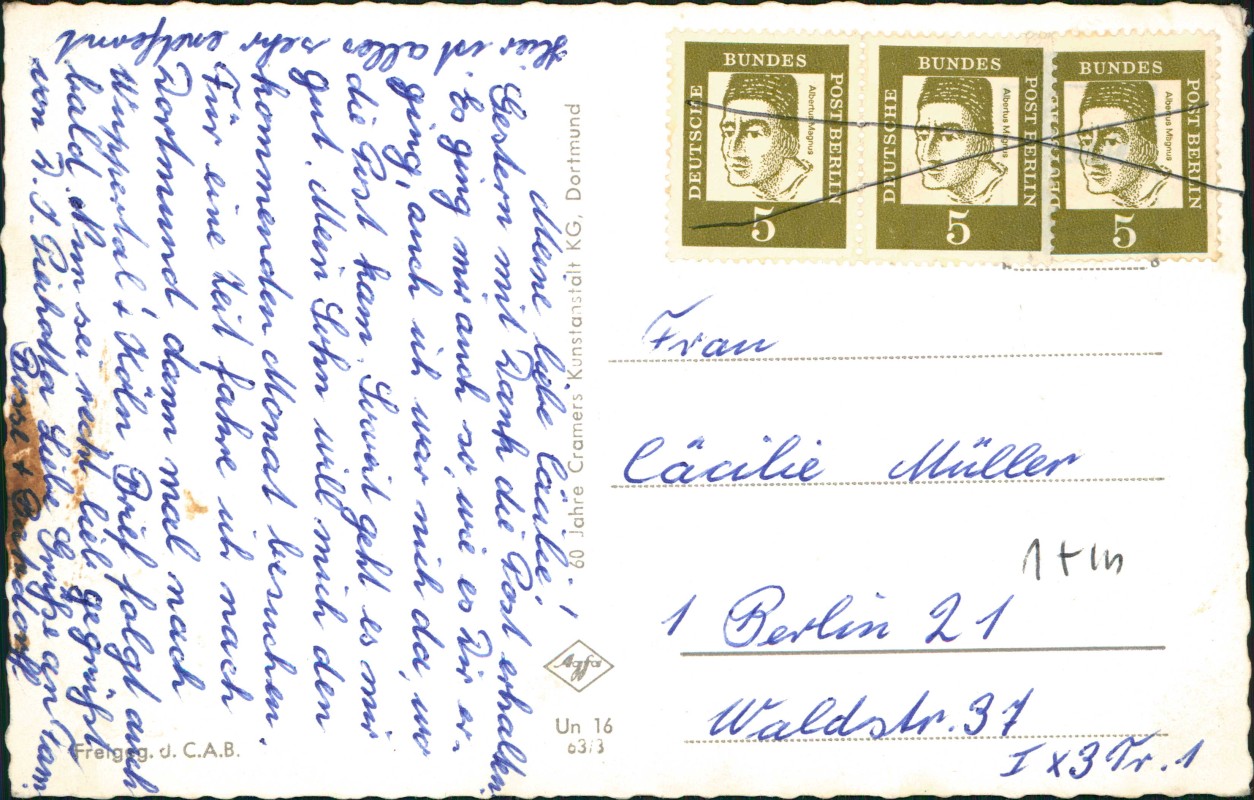 Meine liebe Cäcilie!
Gestern mit Dank die Post erhalten
Es ging mir auch so, wie es Dir er-
ging, auch ich war nich da, wo
die Post kam. Soweit geht es mir
gut. Mein Sohn will mich den
kommenden Monat besuchen.
Für eine Zeit fahre ich nach
Dortmund dann mal nach
Wuppertal + Köln. Brief folgt auch
bald. Nun sei recht lieb gegrüßt
von D. F. Liebe Grüße an Fam.
Busse +
Hier ist alles sehr entfernt
60 Jahre Cramers Kunstanstalt KG, Dortmund
Agfa
Un 16
63/3
Freigeg. d. C.A.B.
DEUTSCHE BUNDES POST BERLIN
Albertus Magnus
5
DEUTSCHE BUNDES POST BERLIN
Albertus Magnus
5
BUNDES POST BERLIN
Albertus Magnus
5
Frau
Cäcilie Müller
1 Berlin 21
Waldstr. 37
I x 3 Tr. 1